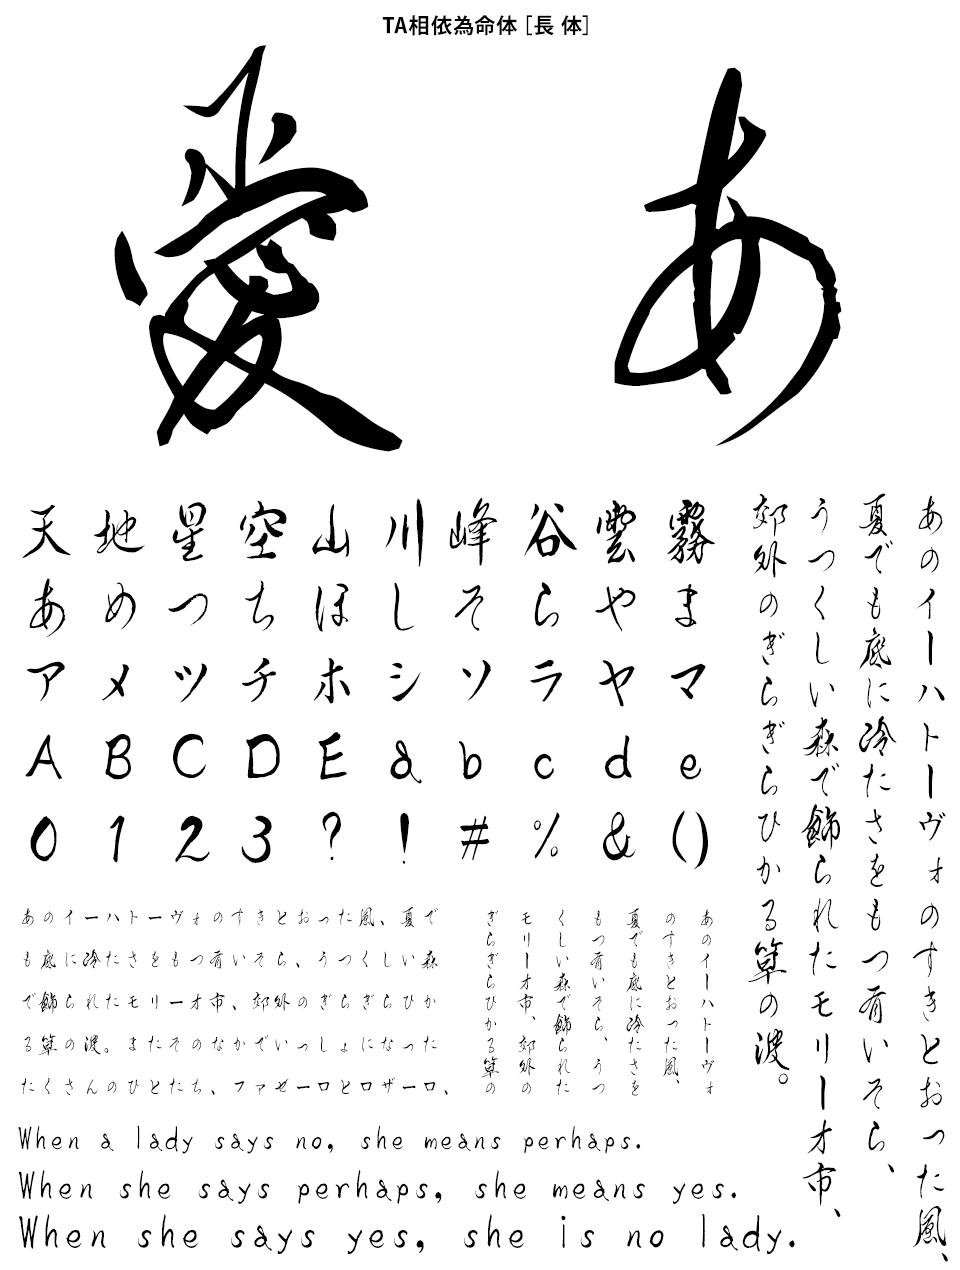 TA相依為命体［長 体］
愛
あ
天地星空山川峰谷雲霧
あめつちほしそらやま
アメツチホシソラヤマ
ABCDEabcde
0123?!#%&()
あのイーハトーヴォのすきとおった風、
夏でも底に冷たさをもつ青いそら、
うつくしい森で飾られたモリーオ市、
郊外のぎらぎらひかる草の波。
あのイーハトーヴォのすきとおった風、夏で
も底に冷たさをもつ青いそら、うつくしい森
で飾られたモリーオ市、郊外のぎらぎらひか
る草の波。またそのなかでいっしょになった
たくさんのひとたち、ファゼーロとロザーロ、
あのイーハトーヴォ
のすきとおった風、
夏でも底に冷たさを
もつ青いそら、うつ
くしい森で飾られた
モリーオ市、郊外の
ぎらぎらひかる草の
When a lady says no, she means perhaps.
When she says perhaps, she means yes.
When she says yes, she is no lady.